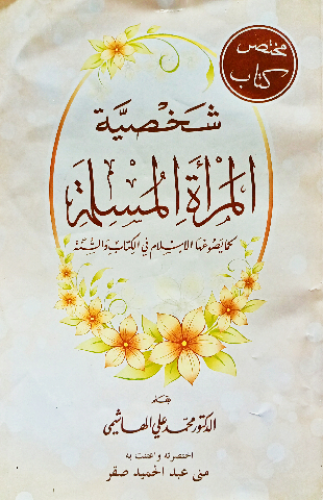 مختصر
كتاب
شخصية
المرأة المسلمة
كما يصوغها الإسلام في الكتاب والسنة
بقلم
الدكتور محمد علي الهاشمي
اختصرته واعتنت به
منى عبد الحميد صقر